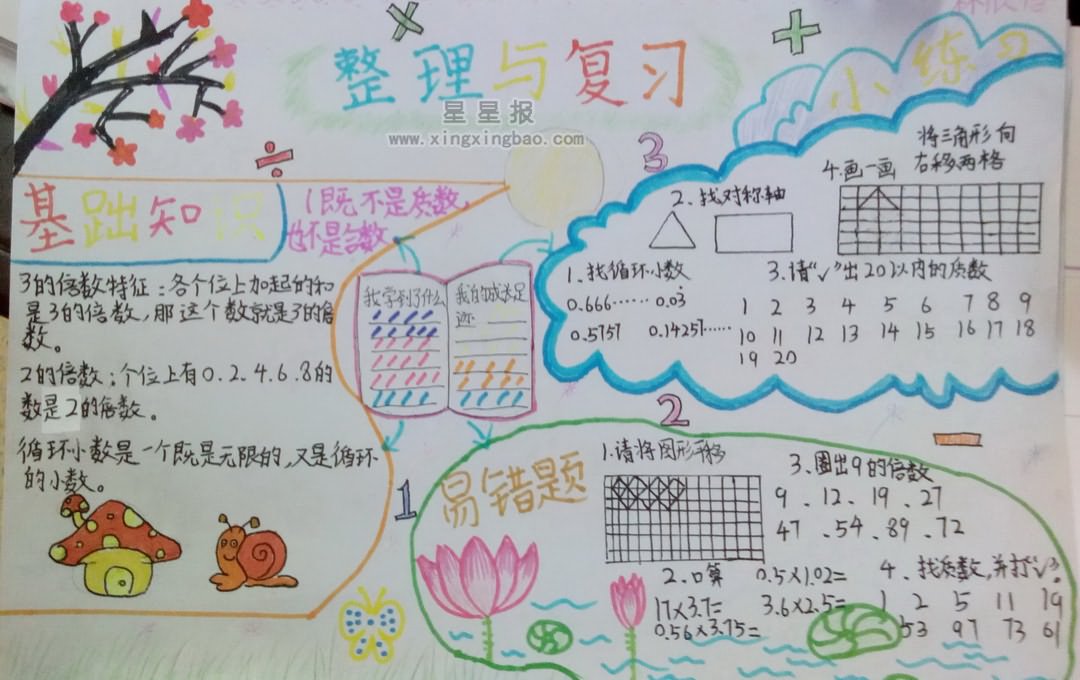 整理与复习
星星报
www.xingxingbao.com
基础知识
1既不是质数，
也不是合数
3的倍数特征：各个位上加起的和
是3的倍数，那这个数就是3的倍
数。
2的倍数：个位上有0.2.4.6.8的
数是2的倍数。
循环小数是一个既是无限的，又是循环
的小数。
我学到了什么
我的成长足
迹
小练习
3
1、找循环小数
0.666…… 0.03̇
0.5757 0.14257……
2、找对称轴
3、请“√”出20以内的质数
1 2 3 4 5 6 7 8 9
10 11 12 13 14 15 16 17 18
19 20
4.画一画
将三角形向
右移两格
1
2
易错题
1.请将图形平移
2、口算 0.5×1.02=
17×3.7= 3.6×2.5=
0.56×3.75=
3、圈出9的倍数
9、12、19、27
47、54、89、72
4、找质数，并打“√”。
1 2 5 11 19
53 97 73 61